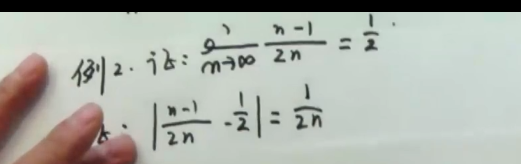 例2. 证: lim n→∞ n-1/2n = 1/2.
证: |n-1/2n - 1/2| = 1/2n